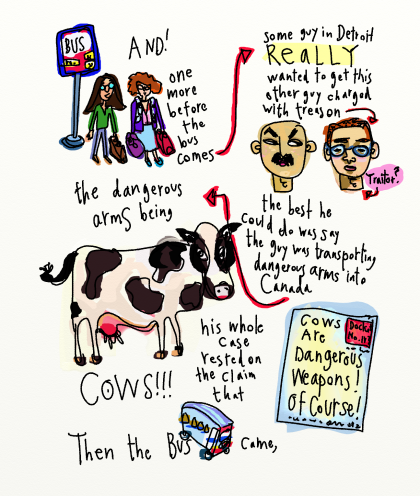 BUS
AND!
one
more
before
the
bus
comes
some guy in Detroit
REALLY
wanted to get this
other guy charged
with treason
Traitor?
the best he
could do was say
the guy was transporting
dangerous arms into
Canada
the dangerous
arms being
COWS!!!
his whole
case
rested on
the claim
that
Cows
Are
Dangerous
Weapons!
Of Course!
Then the Bus came,